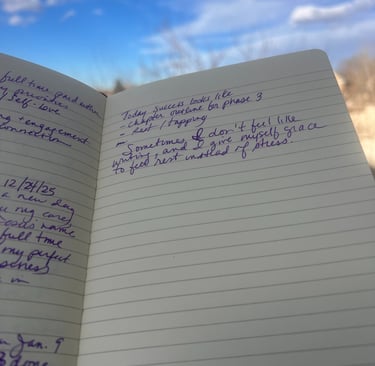 full time
my
self-love
+ engagement
connection
12/24/25
a new day
my
name
full time
my perfect
m
Jan. 9
Today success looks like
- chapter outline for phase 3
- rest / tapping
m
Sometimes I don't feel like
writing, and I give myself grace
to feel rest instead of stress.